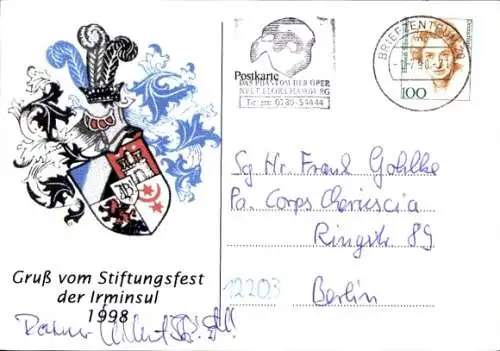 Postkarte
DAS PHANTOM DER OPER
NEUE FLORA HAMBURG
BRIEFZENTRUM 20
100
Sg Hr. Frank Gohlke
Pa. Corps
Ringstr. 89
12203
Berlin
Gruß vom Stiftungsfest
der Irminsul
1998
Rainer